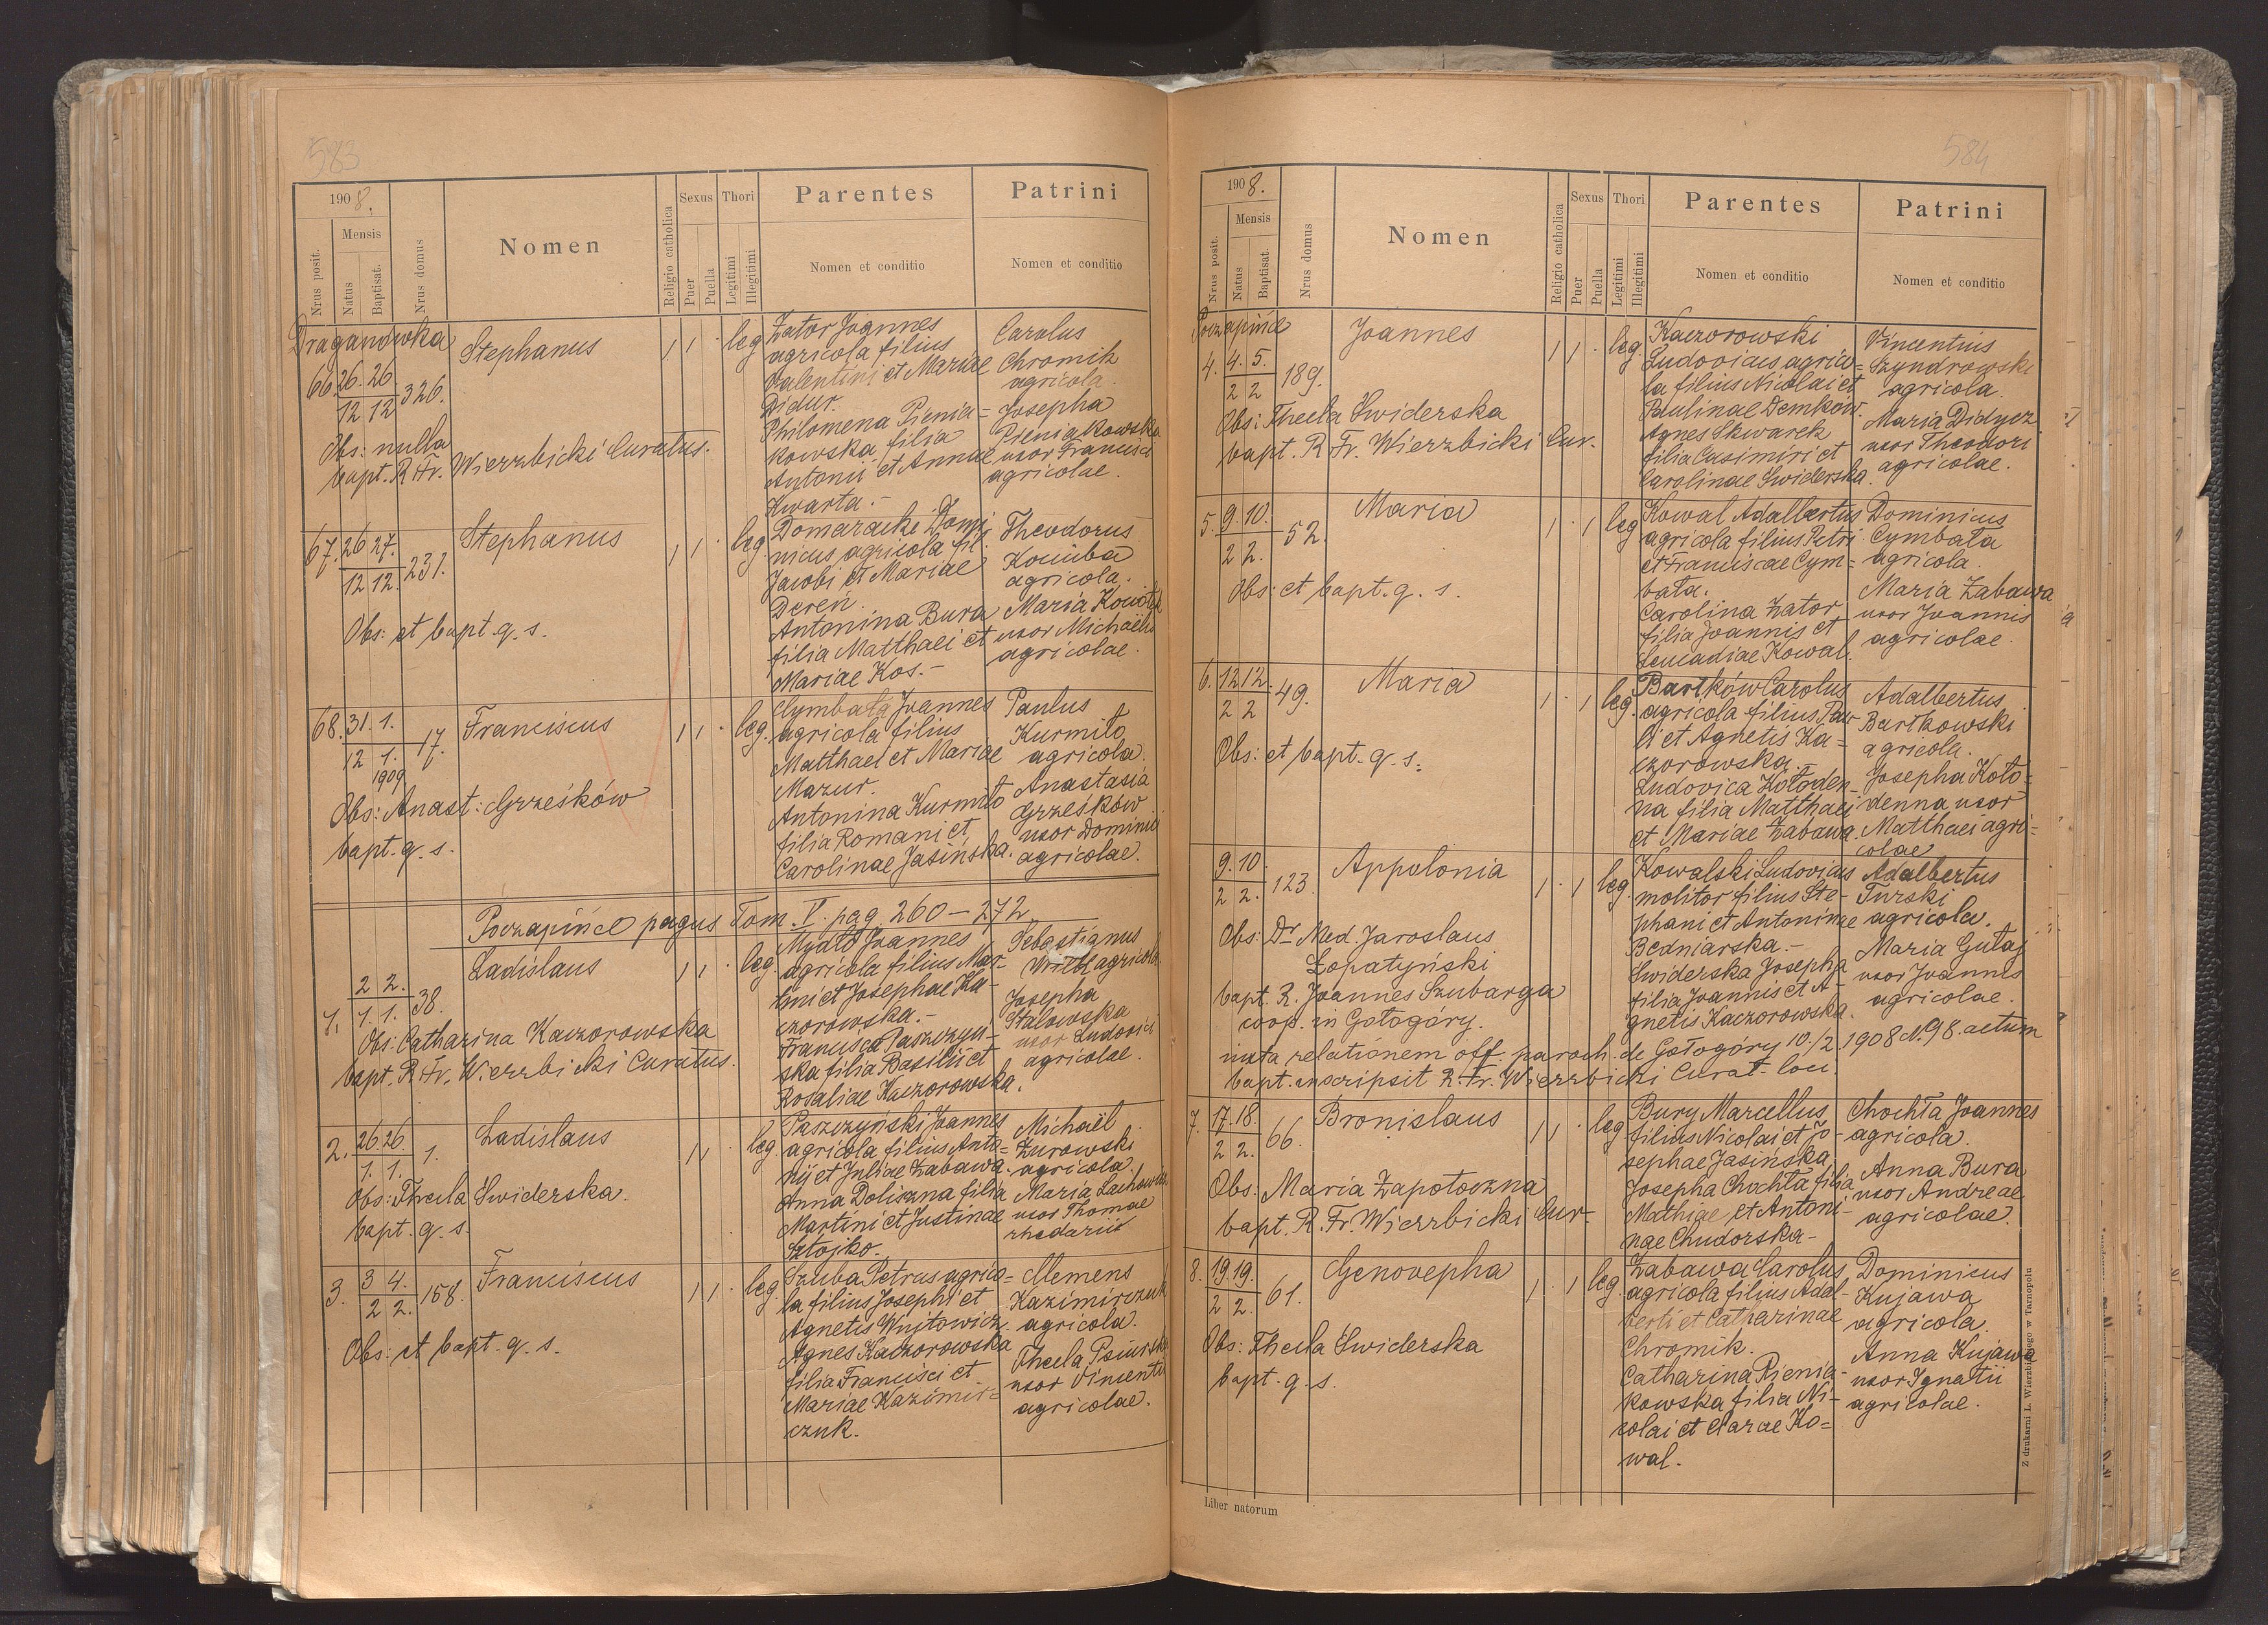 583
1908.
Nrus posit.
Mensis
Natus
Baptisat.
Nrus domus
Nomen
Religio catholica
Sexus
Puer
Puella
Thori
Legitimi
Illegitimi
Parentes
Nomen et conditio
Patrini
Nomen et conditio
Draganówka
66. 26. 26.
12 12
326.
Stephanus
1 1 · leg
Zator Joannes
agricola filius
Valentini et Mariae
Didur.
Philomena Pienia=
kowska filia
Antonii et Annae
Kwarta.-
Carolus
Chromik
agricola.
Josepha
Pieniakowska
uxor Francisci
agricolae.
Obs: nulla
bapt. R. Fr. Wierzbicki Curatus.
67. 26 27.
12 12.
231.
Stephanus
1 1 · leg.
Domaracki Domi
nicus agricola fil.
Jacobi et Mariae
Dereń.
Antonina Bura
filia Matthaei et
Mariae Kos.-
Theodorus
Kociuba
agricola.
Maria
uxor Michaëlis
agricolae.
Obs: et bapt. q. s.
68. 31. 1.
12 1.
1909
17.
Franciscus
1 1 · leg.
Cymbała Joannes
agricola filius
Matthaei et Mariae
Mazur.
Antonina Kurmiło
filia Romani et
Carolinae Jasińska.
Paulus
Kurmiło
agricola.
Anastasia
Grześków
uxor Dominici
agricolae.
Obs: Anast: Grześków
bapt. q. s.
Poczapińce pagus Tom. V. pag. 260 – 272.
1. 2 2.
1. 1.
38.
Ladislaus
1 1 · leg.
Mydło Joannes
agricola filius Mar-
tini et Josephae Ka-
czorowska.-
Francisca Paszczyń-
ska filia Basilii et
Rosaliae Kaczorowska.
Sebastianus
agricola.
Josepha
Stalowska
uxor Ludovici
agricolae.
Obs: Catharina Kaczorowska
bapt. R. Fr. Wierzbicki Curatus.
2. 26 26
1. 1.
1.
Ladislaus
1 1 · leg.
Paszczyński Joannes
agricola filius Anto=
nii et Juliae Zabawa.
Anna Doliszna filia
Martini et Justinae
Sztojko.
Michaël
Żurowski
agricola.
Maria
uxor Thomae
rhedarii
Obs: Thecla Świderska.
bapt. q. s.
3. 3 4.
2 2.
158.
Franciscus
1 1 · leg.
Szuba Petrus agrico=
la filius Josephi et
Agnetis Wujtowicz.
Agnes Kaczorowska
filia Francisci et
Mariae Kazimir=
czuk.
Clemens
Kazimirczuk
agricola.
Thecla
uxor Vincentii
agricolae.
Obs: et bapt. q. s.
584
1908.
Nrus posit.
Mensis
Natus
Baptisat.
Nrus domus
Nomen
Religio catholica
Sexus
Puer
Puella
Thori
Legitimi
Illegitimi
Parentes
Nomen et conditio
Patrini
Nomen et conditio
Poczapińce
4. 4. 5.
2 2
189.
Joannes
1 1 · leg.
Kaczorowski
Ludovicus agrico=
la filius Nicolai et
Paulinae Demków.
Agnes Skwarek
filia Casimiri et
Carolinae Świderska.
Vincentius
Szyndrowski
agricola.
Maria Didycz
uxor Theodori
agricolae.
Obs: Thecla Świderska
bapt. R. Fr. Wierzbicki Cur.
5. 9. 10.
2 2.
52.
Maria
1 · 1 leg
Kowal Adalbertus
agricola filius Petri
et Franciscae Cym=
bała.
Carolina Zator
filia Joannis et
Leucadiae Kowal.
Dominicus
Cymbała
agricola.
Maria Zabawa
uxor Joannis
agricolae.
Obs: et bapt. q. s.
6. 12 12.
2 2
49.
Maria
1 · 1 leg.
Bartków Carolus
agricola filius Pau-
li et Agnetis Ka=
czorowska.-
Ludovica Kołoden-
na filia Matthaei
et Mariae Zabawa.
Adalbertus
Bartkowski
agricola.
Josepha Koło=
denna uxor
Matthaei agri=
colae
Obs: et bapt. q. s.
9. 10
2 2.
123.
Appolonia
1 · 1 leg.
Kowalski Ludovicus
molitor filius Ste-
phani et Antoninae
Bedniarska.-
Świderska Josepha
filia Joannis et A-
gnetis Kaczorowska.
Adalbertus
Turski
agricola.
Maria Gutaj
uxor Joannis
agricolae.
Obs: Dr Med. Jaroslaus
Łopatyński
bapt. R. Joannes Szubarga
coop. in Gołogóry.
iuxta relationem off. paroch. de Gołogóry 10./2 1908 N. 98 actum
bapt. inscripsit R. Fr. Wierzbicki Curat. loci.
7. 17. 18.
2 2.
66.
Bronislaus
1 1 · leg
Bury Marcellus
filius Nicolai et Jo-
sephae Jasińska.
Josepha Chochła filia
Mathiae et Antoni-
nae Chudorska-
Chochła Joannes
agricola.
Anna Bura
uxor Andreae
agricolae.
Obs. Maria Zapotoczna
bapt. R. Fr. Wierzbicki Cur-
8. 19. 19.
2 2.
61.
Genovepha
1 · 1 leg.
Zabawa Carolus
agricola filius Adal-
berti et Catharinae
Chromik.
Catharina Pienia-
kowska filia Ni-
colai et Clarae Ko=
wal.
Dominicus
Kujawa
agricola.
Anna Kujawa
uxor Ignatii
agricolae.
Obs: Thecla Świderska
bapt. q. s.
Liber natorum
Z drukarni L. Wierzbickiego w Tarnopolu